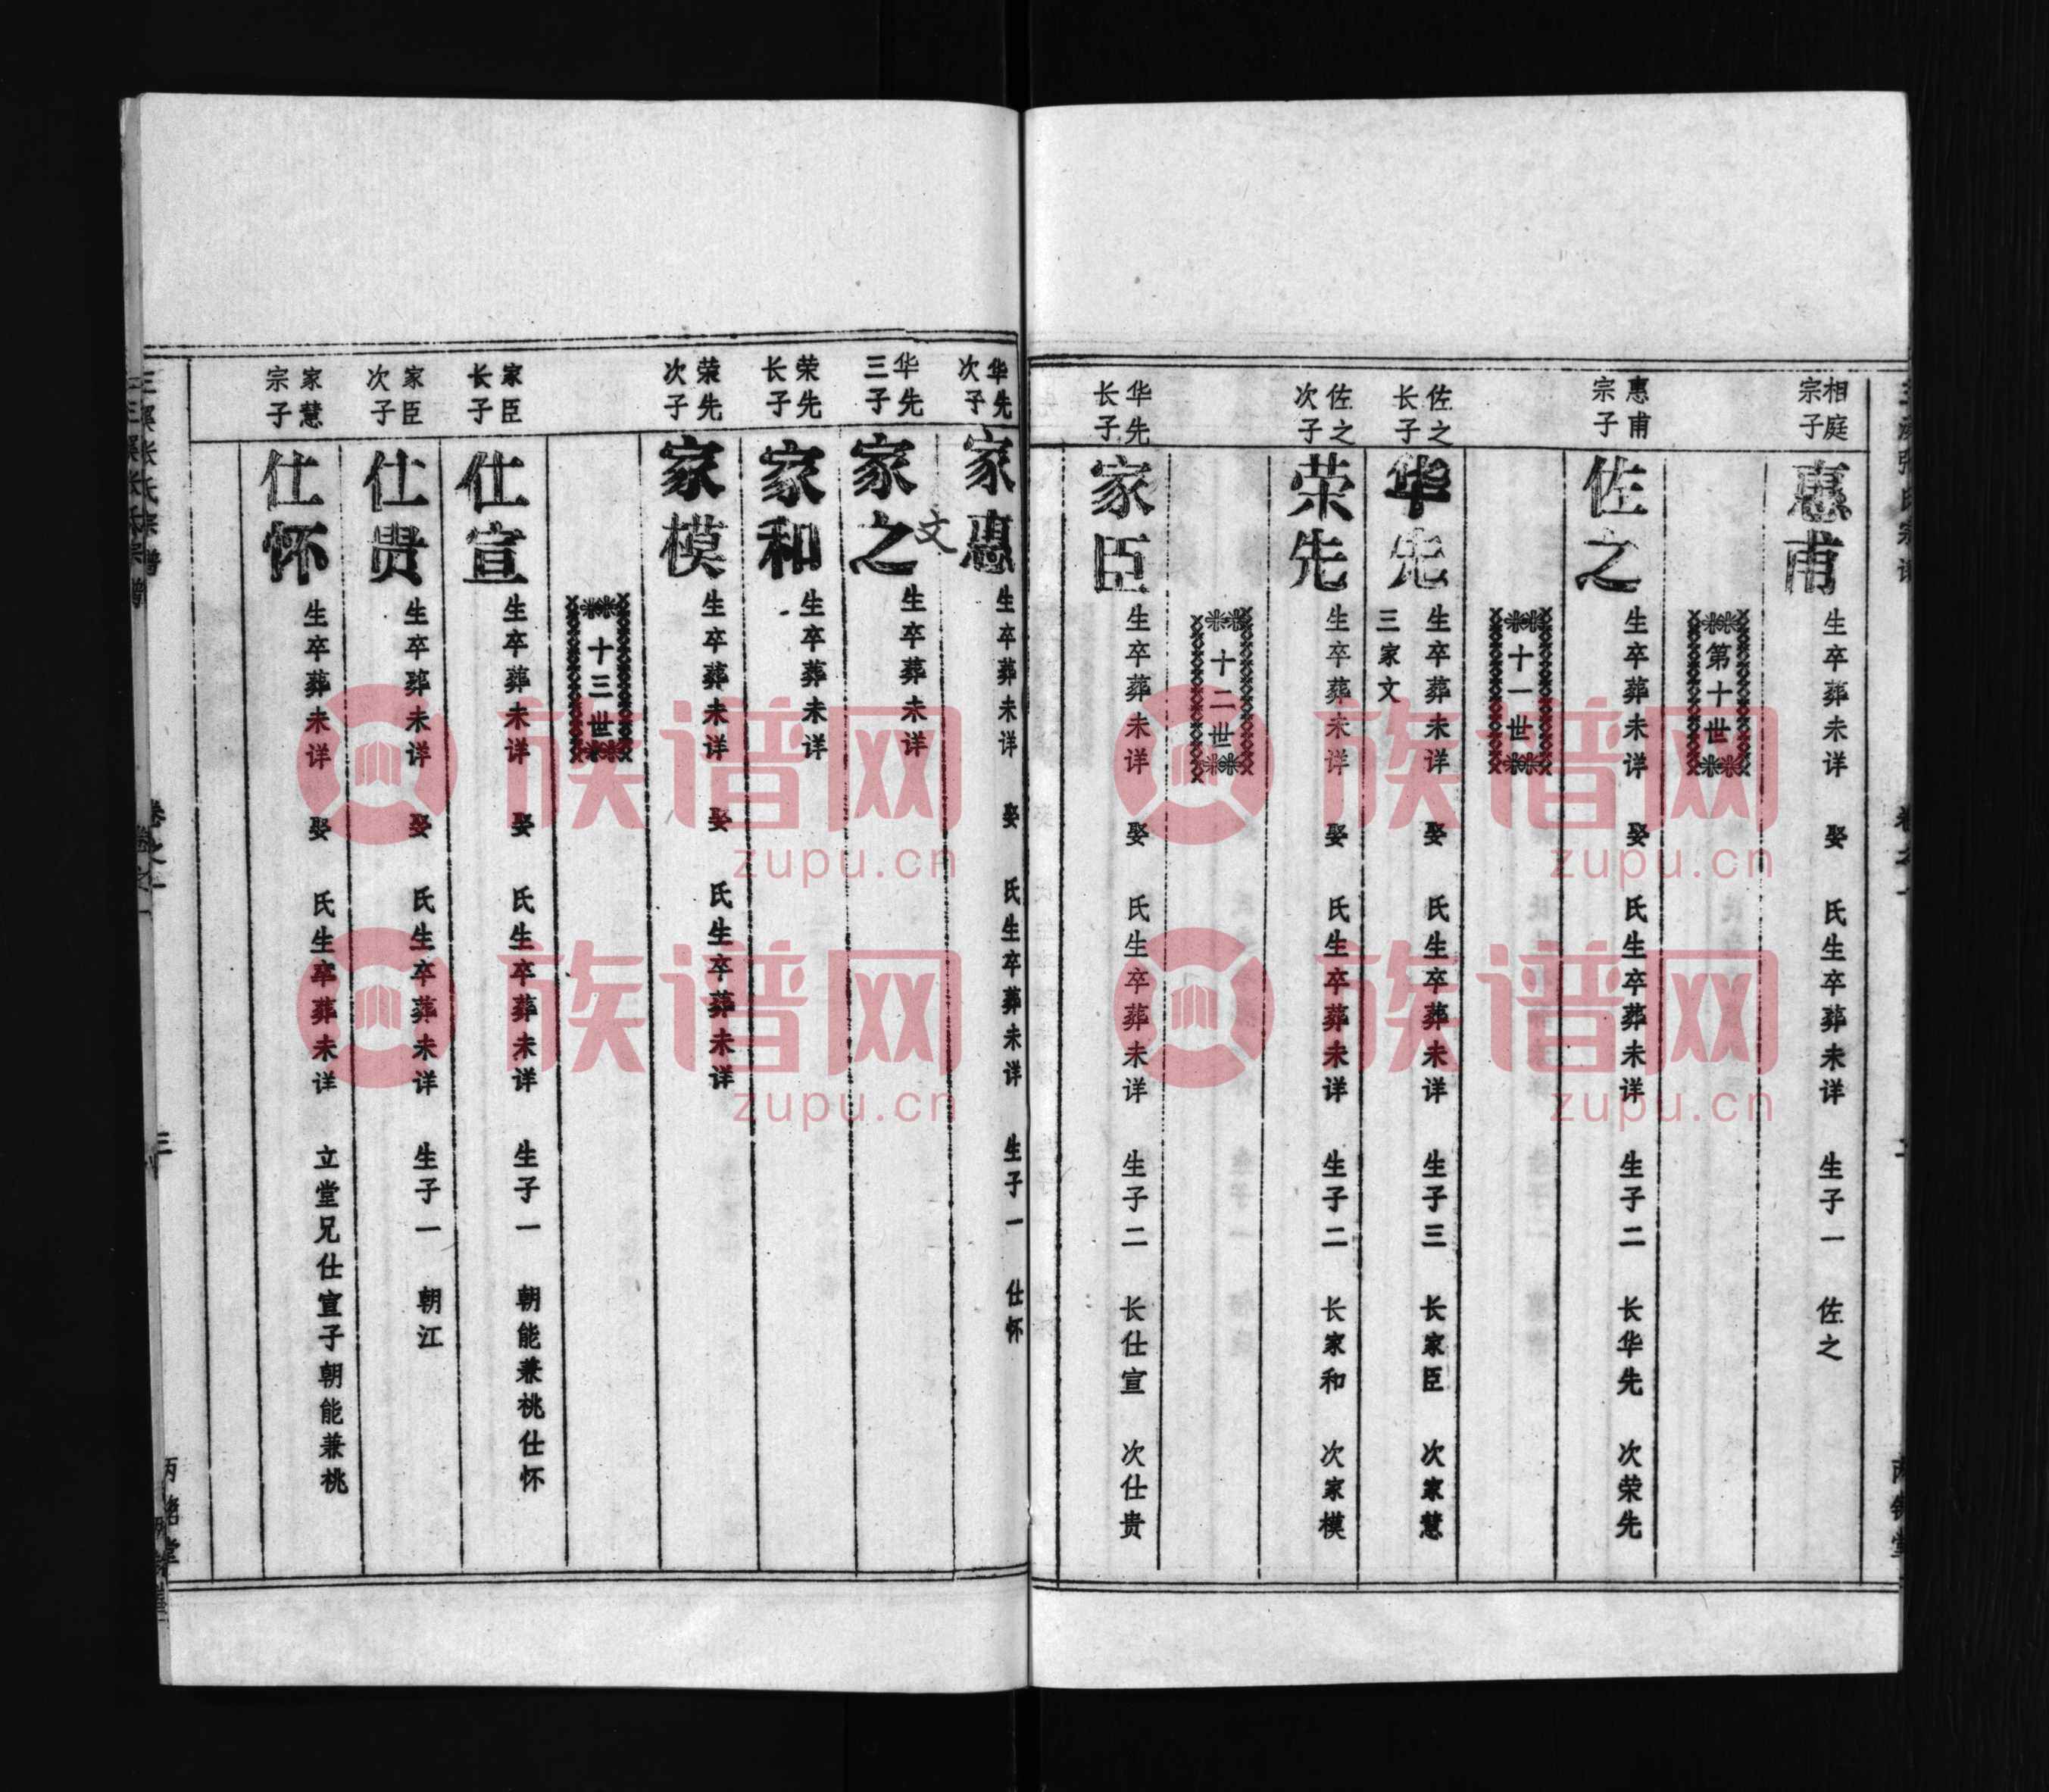 相庭
宗子
惠甫
生卒葬未详 娶 氏生卒葬未详 生子一 佐之
第十世
惠甫
宗子
佐之
生卒葬未详 娶 氏生卒葬未详 生子二 长华先 次荣先
十一世
佐之
长子
华先
生卒葬未详 娶 氏生卒葬未详 生子三 长家臣 次家慧
三家文
佐之
次子
荣先
生卒葬未详 娶 氏生卒葬未详 生子二 长家和 次家模
十二世
华先
长子
家臣
生卒葬未详 娶 氏生卒葬未详 生子二 长仕宣 次仕贵
华先
次子
家惠
生卒葬未详 娶 氏生卒葬未详 生子一 仕怀
华先
三子
家之
文
生卒葬未详
荣先
长子
家和
生卒葬未详
荣先
次子
家模
生卒葬未详 娶 氏生卒葬未详
十三世
家臣
长子
仕宣
生卒葬未详 娶 氏生卒葬未详 生子一 朝能兼桃仕怀
家臣
次子
仕贵
生卒葬未详 娶 氏生卒葬未详 生子一 朝江
家慧
宗子
仕怀
生卒葬未详 娶 氏生卒葬未详 立堂兄仕宣子朝能兼桃
张氏宗谱
卷之一
三
族谱网
zupu.cn
族谱网
zupu.cn
族谱网
zupu.cn
族谱网
zupu.cn